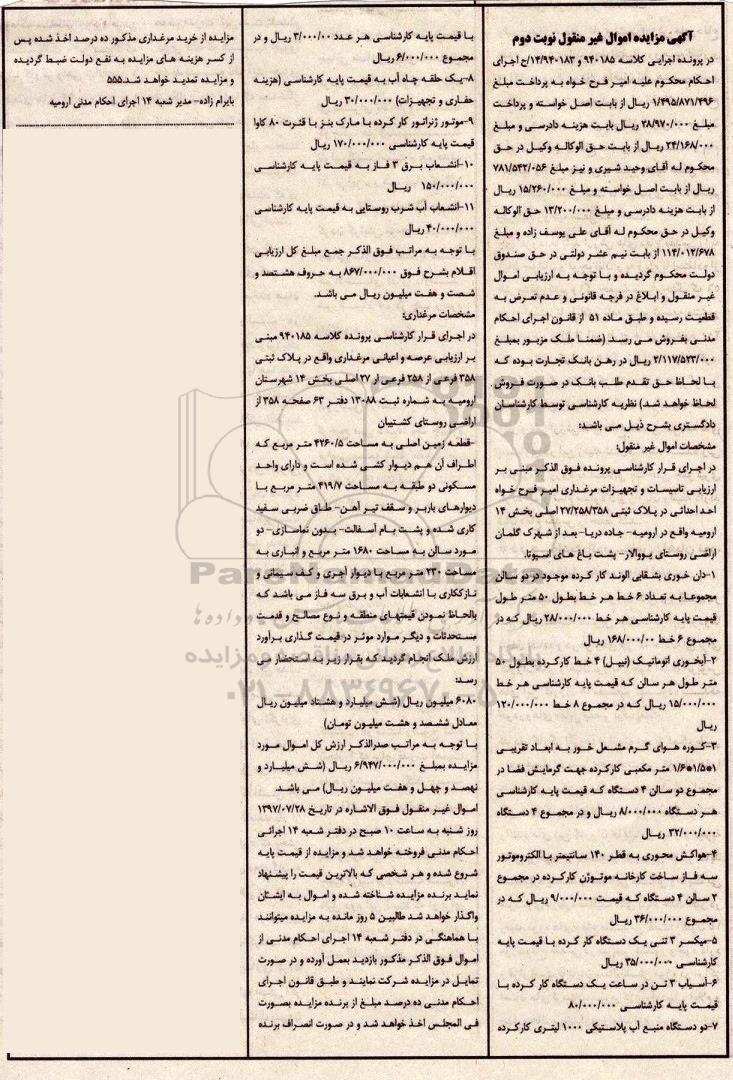 آگهی مزایده اموال غیر منقول نوبت دوم
در پرونده اجرایی کلاسه ۹۴۰۱۸۵ و ۱۴/۹۴۰۱۸۳/ج اجرای
احکام محکوم علیه امیر فرح خواه به پرداخت مبلغ
۱/۴۹۵/۸۷۱/۴۹۶ ریال از بابت اصل خواسته و پرداخت
مبلغ ۲۸/۹۷۰/۰۰۰ ریال بابت هزینه دادرسی و مبلغ
۲۴/۱۶۸/۰۰۰ ریال از بابت حق الوکاله وکیل در حق
محکوم له آقای وحید شیری و نیز مبلغ ۷۸۱/۵۴۲/۰۵۶
ریال از بابت اصل خواسته و مبلغ ۱۵/۲۶۰/۰۰۰ ریال
از بابت هزینه دادرسی و مبلغ ۱۳/۲۰۰/۰۰۰ حق الوکاله
وکیل در حق محکوم له آقای علی یوسف زاده و مبلغ
۱۱۴/۰۱۲/۶۷۸ از بابت نیم عشر دولتی در حق صندوق
دولت محکوم گردیده و با توجه به ارزیابی اموال
غیر منقول و ابلاغ در فرجه قانونی و عدم تعرض به
قطعیت رسیده و طبق ماده ۵۱ از قانون اجرای احکام
مدنی بفروش می رسد. (ضمنا ملک مزبور بمبلغ
۲/۱۱۷/۵۲۳/۰۰۰ ریال در رهن بانک تجارت بوده که
با لحاظ حق تقدم طلب بانک در صورت فروش
لحاظ خواهد شد) نظریه کارشناسی توسط کارشناسان
دادگستری بشرح ذیل می باشد:
مشخصات اموال غیر منقول:
در اجرای قرار کارشناسی پرونده فوق الذکر مبنی بر
ارزیابی تاسیسات و تجهیزات مرغداری امیر فرح خواه
احد احداثی در پلاک ثبتی ۲۷/۲۵۸/۳۵۸ اصلی بخش ۱۴
ارومیه واقع در ارومیه- جاده دریا- بعد از شهرک گلمان
اراضی روستای یووالار- پشت باغ های اسپوتا.
۱-دان خوری بشقابی الوند کار کرده موجود در دو سالن
مجموعا به تعداد ۶ خط هر خط بطول ۵۰ متر طول
قیمت پایه کارشناسی هر خط ۲۸/۰۰۰/۰۰۰ ریال که در
مجموع ۶ خط ۱۶۸/۰۰۰/۰۰ ریال
۲-آبخوری اتوماتیک (نیپل) ۴ خط کارکرده بطول ۵۰
متر طول هر سالن که قیمت پایه کارشناسی هر خط
۱۵/۰۰۰/۰۰۰ ریال که در مجموع ۸ خط ۱۲۰/۰۰۰/۰۰۰
ریال
۳-کوره هوای گرم مشعل خور به ابعاد تقریبی
۱*۱/۵*۱/۶ متر مکعبی کارکرده جهت گرمایش فضا در
مجموع دو سالن ۴ دستگاه که قیمت پایه کارشناسی
هر دستگاه ۸/۰۰۰/۰۰۰ ریال و در مجموع ۴ دستگاه
۳۲/۰۰۰/۰۰۰ ریال
۴-هواکش محوری به قطر ۱۴۰ سانتیمتر با الکتروموتور
سه فاز ساخت کارخانه موتوژن کارکرده در مجموع
۲ سالن ۴ دستگاه که قیمت ۹/۰۰۰/۰۰۰ ریال که در
مجموع ۳۶/۰۰۰/۰۰۰ ریال
۵-میکسر ۳ تنی یک دستگاه کار کرده با قیمت پایه
کارشناسی ۳۵/۰۰۰/۰۰۰ ریال
۶-آسیاب ۳ تن در ساعت یک دستگاه کار کرده با
قیمت پایه کارشناسی ۸۰/۰۰۰/۰۰۰
۷-دو دستگاه منبع آب پلاستیکی ۱۰۰۰ لیتری کارکرده
با قیمت پایه کارشناسی هر عدد ۳/۰۰۰/۰۰ ریال و در
مجموع ۶/۰۰۰/۰۰۰ ریال
۸-یک حلقه چاه آب به قیمت پایه کارشناسی (هزینه
حفاری و تجهیزات) ۳۰/۰۰۰/۰۰۰ ریال
۹-موتور ژنراتور کار کرده با مارک بنز با قدرت ۸۰ کاوا
قیمت پایه کارشناسی ۱۷۰/۰۰۰/۰۰۰ ریال
۱۰-انشعاب برق ۳ فاز به قیمت پایه کارشناسی
۱۵۰/۰۰۰/۰۰۰ ریال
۱۱-انشعاب آب شرب روستایی به قیمت پایه کارشناسی
۴۰/۰۰۰/۰۰۰ ریال
با توجه به مراتب فوق الذکر جمع مبلغ کل ارزیابی
اقلام بشرح فوق ۸۶۷/۰۰۰/۰۰۰ به حروف هشتصد و
شصت و هفت میلیون ریال می باشد.
مشخصات مرغداری:
در اجرای قرار کارشناسی پرونده کلاسه ۹۴۰۱۸۵ مبنی
بر ارزیابی عرصه و اعیانی مرغداری واقع در پلاک ثبتی
۳۵۸ فرعی از ۲۵۸ فرعی از ۲۷ اصلی بخش ۱۴ شهرستان
ارومیه به شماره ثبت ۱۳۰۸۸ دفتر ۶۳ صفحه ۳۵۸ از
اراضی روستای کشتیبان
-قطعه زمین اصلی به مساحت ۴۲۶۰/۵ متر مربع که
اطراف آن هم دیوار کشی شده است و دارای واحد
مسکونی دو طبقه به مساحت ۴۱۹/۷ متر مربع با
دیوارهای باربر و سقف تیر آهن- طاق ضربی سفید
کاری شده و پشت بام آسفالت- بدون نماسازی- دو
مورد سالن به مساحت ۱۶۸۰ متر مربع و انباری به
مساحت ۲۳۰ متر مربع با دیوار آجری و کف سیمانی و
نازککاری با انشعابات آب و برق سه فاز می باشد که
بالحاظ نمودن قیمتهای منطقه و نوع مصالح و قدمت
مستحدثات و دیگر موارد موثر در قیمت گذاری برآورد
ارزش ملک انجام گردید که بقرار زیر به استحضار می
رسد:
۶۰۸۰ میلیون ریال (شش میلیارد و هشتاد میلیون ریال
معادل ششصد و هشت میلیون تومان)
با توجه به مراتب صدرالذکر ارزش کل اموال مورد
مزایده بمبلغ ۶/۹۴۷/۰۰۰/۰۰۰ ریال (شش میلیارد و
نهصد و چهل و هفت میلیون ریال) می باشد.
اموال غیر منقول فوق الاشاره در تاریخ ۱۳۹۷/۰۷/۲۸
روز شنبه به ساعت ۱۰ صبح در دفتر شعبه ۱۴ اجرائی
احکام مدنی فروخته خواهد شد و مزایده از قیمت پایه
شروع شده و هر شخصی که بالاترین قیمت را پیشنهاد
نماید برنده مزایده شناخته شده و اموال به ایشان
واگذار خواهد شد طالبین ۵ روز مانده به مزایده میتوانند
با هماهنگی در دفتر شعبه ۱۴ اجرای احکام مدنی از
اموال فوق الذکر مذکور بازدید بعمل آورده و در صورت
تمایل در مزایده شرکت نمایند و طبق قانون اجرای
احکام مدنی ده درصد مبلغ از برنده مزایده بصورت
فی المجلس اخذ خواهد شد و در صورت انصراف برنده
مزایده از خرید مرغداری مذکور ده درصد اخذ شده پس
از کسر هزینه های مزایده به نفع دولت ضبط گردیده
و مزایده تمدید خواهد شد.۵۵۵
بایرام زاده- مدیر شعبه ۱۴ اجرای احکام مدنی ارومیه
ParsNamadData
پایگاه اطلاع رسانی مناقصه و مزایده
۰۲۱-۸۸۳۴۹۶۷۰-۵